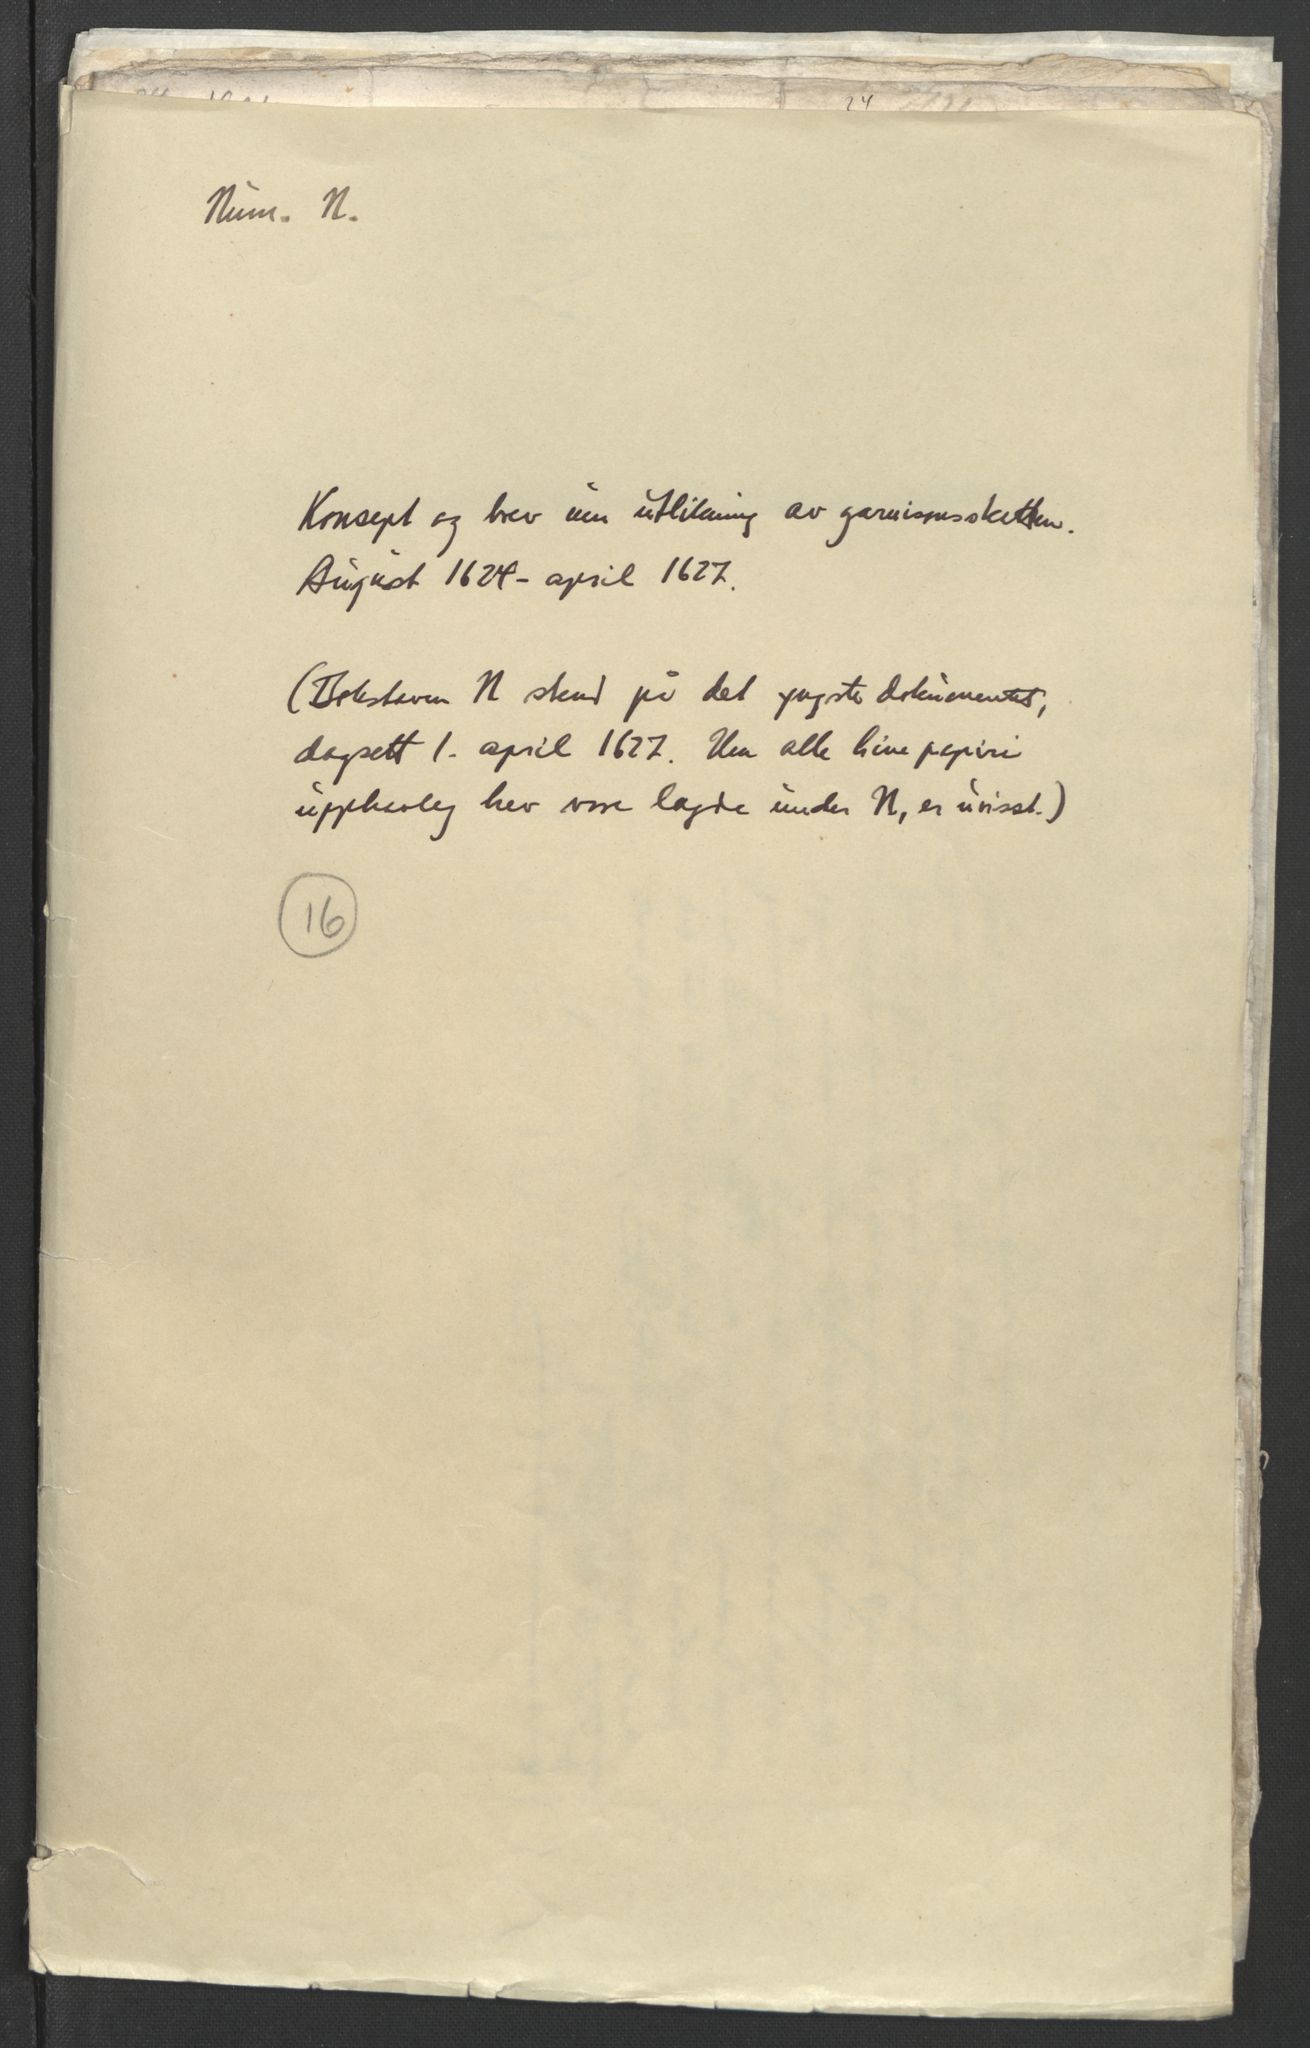 24
Num. N.
Konsept og brev um utlikning av garnisonsskatten.
August 1624 - april 1627.
(Bokstaven N stend på det yngste dokumentet,
dagsett 1. april 1627. Um alle hine papiri
upphavleg hev vore lagde under N, er uvisst.)
16